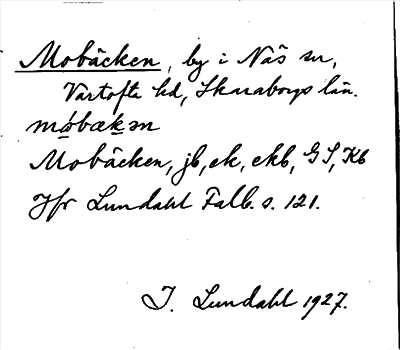 Mobäcken, by i Näs sn,
Vartofta hd, Skaraborgs län.
mǿbæk̲ən
Mobäcken, jb, ek, ekb, GS, Kb
Jfr Lundahl Falb. s. 121.
I. Lundahl 1927.